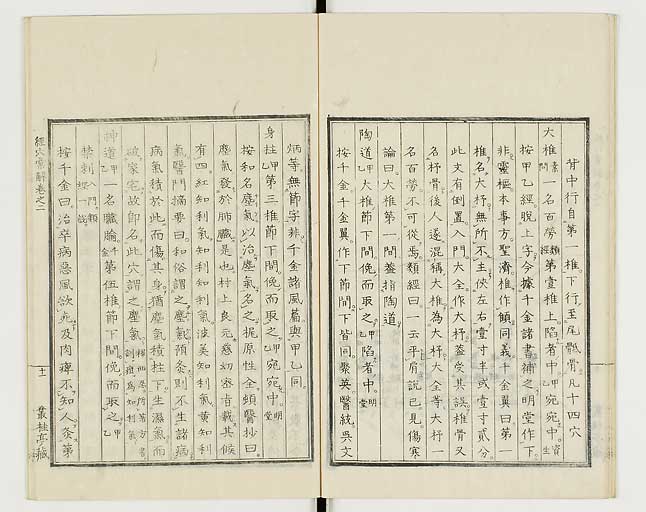 背中行自第一椎下行至尾骶骨凡十四穴
大椎素問一名百勞類經第壹椎上陷者中甲乙宛宛中資生
按甲乙經脫上字今據千金諸書補之明堂作下
非靈樞本事方聖濟椎作顀同義千金翼曰第一
椎名大杼無所不主俠左右壹寸半或壹寸貳分
此文有倒置入門大全作大杼蓋受其誤椎骨又
名杼骨後人遂混稱大椎為大杼大全等大杼一
名百勞不可從焉類經曰一云平肩說已見傷寒
論曰大椎第一間蓋指陶道
陶道甲乙大椎節下間俛而取之甲乙陷者中明堂
按千金千金翼作下節間下皆同聚英醫統吳文
炳等無節字非千金諸風篇與甲乙同
身柱甲乙第三椎節下間俛而取之甲乙宛宛中明堂
按和名塵氣以治塵氣名之梶原性全頓醫抄曰
塵氣發於肺臟是也村上良元慈幼密者載其候
有四紅知利氣知利知利氣波美知利氣黃知利
氣醫門摘要曰和俗謂之塵氣預灸則不生諸病
病氣積於此而傷其身猶塵氣積柱下生濕氣而
破家宅故即名此穴謂之塵氣
神道甲乙一名臟腧千金第伍椎節下間俛而取之甲乙
禁刺
按千金曰治卒病惡風欲死及肉痺不知人灸第
經穴彙解卷之二
十一
叢桂亭藏